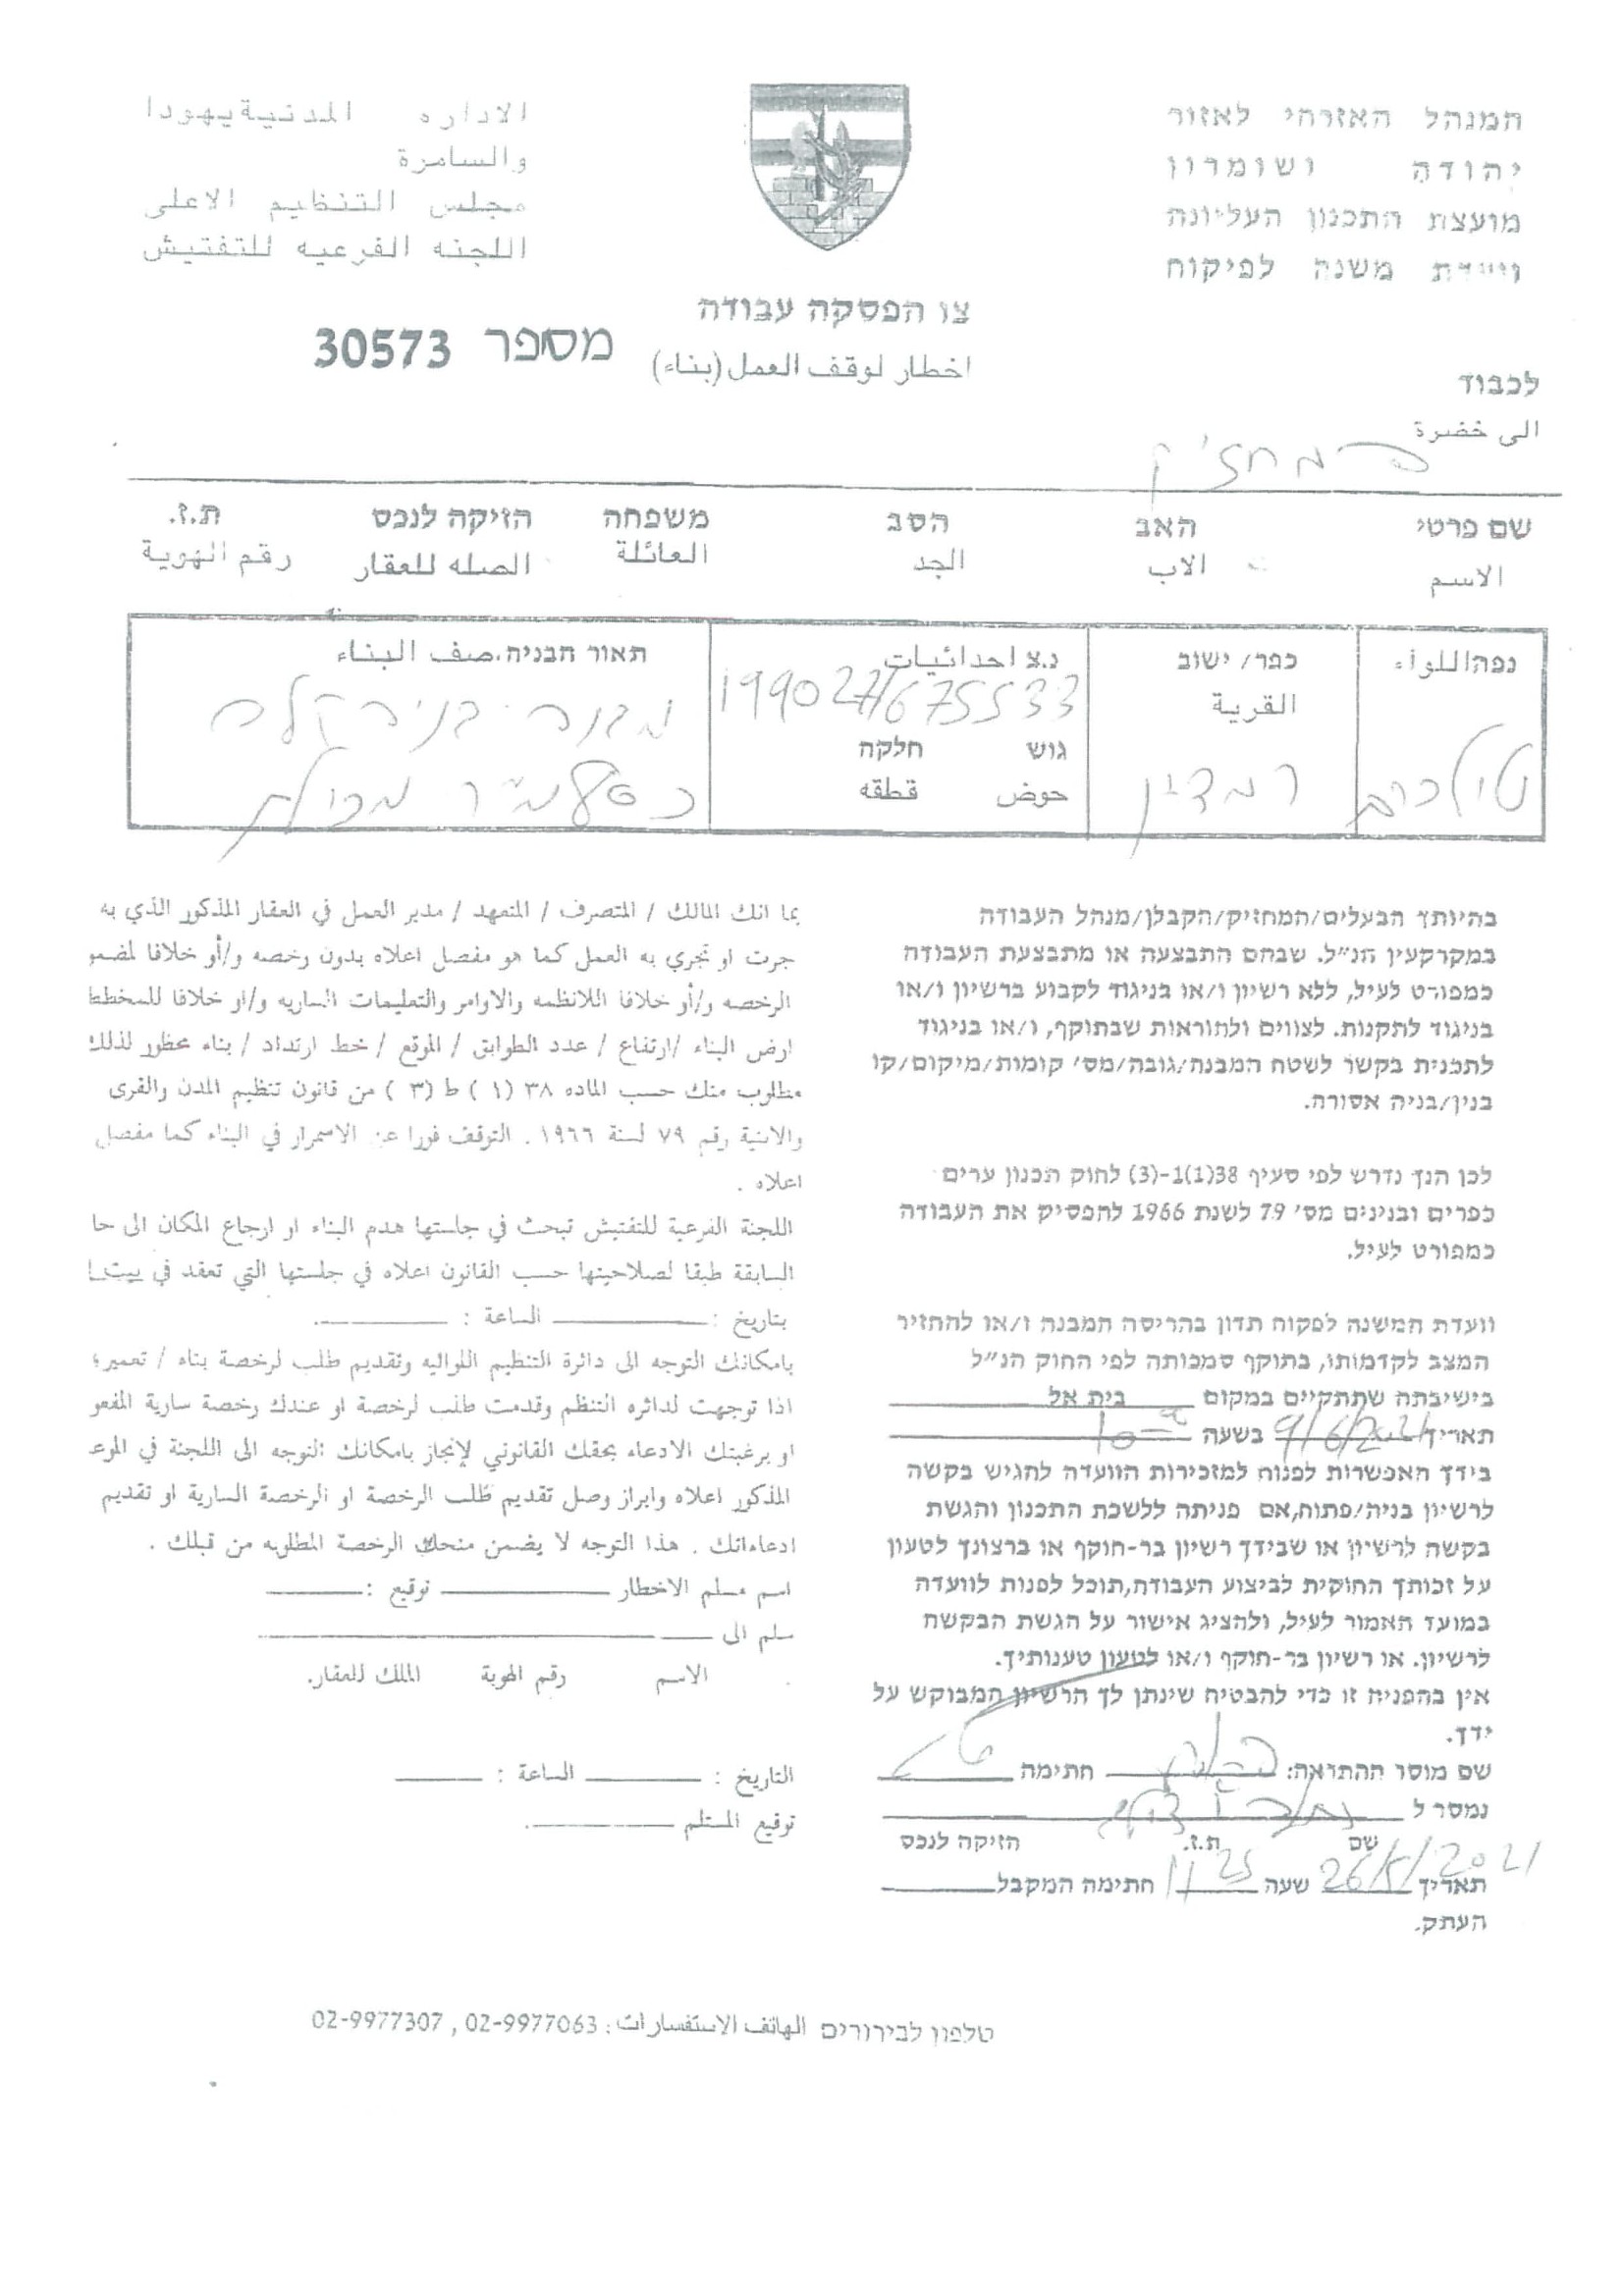 המנהל האזרחי לאזור
יהודה ושומרון
מועצת התכנון העליונה
ועדת משנה לפיקוח
الاداره المدنية يهودا
والسامرة
مجلس التنظيم الاعلى
اللجنه الفرعيه للتفتيش
צו הפסקה עבודה
اخطار لوقف العمل (بناء)
מספר 30573
לכבוד
الى خضرة
המחזיק
שם פרטי האב הסב משפחה הזיקה לנכס ת.ז.
الاسم الاب الجد العائلة الصله للعقار رقم الهوية
נפה اللواء
טולכרם
כפר/ ישוב
القرية
רמדין
נ.צ احداثيات
199027/675533
גוש חלקה
حوض قطقه
תאור הבניה، صف البناء
מבנה בניה קלה
כ
בהיותך הבעלים/המחזיק/הקבלן/מנהל העבודה
במקרקעין הנ"ל. שבהם התבצעה או מתבצעת העבודה
כמפורט לעיל, ללא רשיון ו/או בניגוד לקבוע ברשיון ו/או
בניגוד לתקנות. לצווים ולהוראות שבתוקף, ו/או בניגוד
לתכנית בקשר לשטח המבנה/גובה/מס' קומות/מיקום/קו
בנין/בניה אסורה.
לכן הנך נדרש לפי סעיף 38(1)1-(3) לחוק תכנון ערים
כפרים ובנינים מס' 79 לשנת 1966 להפסיק את העבודה
כמפורט לעיל.
וועדת המשנה לפקוח תדון בהריסה המבנה ו/או להחזיר
המצב לקדמותו, בתוקף סמכותה לפי החוק הנ"ל
בישיבתה שתתקיים במקום בית אל
תאריך 9/6/2021 בשעה 10 00
בידך האפשרות לפנות למזכירות הוועדה להגיש בקשה
לרשיון בניה/פתוח, אם פניתה ללשכת התכנון והגשת
בקשה לרשיון או שבידך רשיון בר-חוקף או ברצונך לטעון
על זכותך החוקית לביצוע העבודה, תוכל לפנות לוועדה
במועד האמור לעיל, ולהציג אישור על הגשת הבקשה
לרשיון. או רשיון בר-חוקף ו/או לטעון טענותיך.
אין בהפניה זו כדי להבטיח שינתן לך הרשיון המבוקש על
ידך.
שם מוסר ההתראה: חתימה
נמסר ל
שם ת.ז. הזיקה לנכס
תאריך 26/5/2021 שעה 11 25 חתימה המקבל
העתק.
بما انك المالك / المتصرف / المتعهد / مدير العمل في العقار المذكور الذي به
جرت او تجري به العمل كما هو مفصل اعلاه بدون رخصه و/أو خلافا لمضمو
الرخصه و/أو خلافا اللانظمه والاوامر والتعليمات الساريه و/او خلافا للمخطط
ارض البناء /ارتفاع / عدد الطوابق / الموقع / خط ارتداد / بناء محظور لذلك
مطلوب منك حسب الماده ٣٨ (١ ) ط (٣ ) من قانون تنظيم المدن والقرى
والابنية رقم ٧٩ لسنة ١٩٦٦ . التوقف فورا عن الاسمرار في البناء كما مفصل
اعلاه .
اللجنة الفرعية للتفتيش تبحث في جلستها هدم البناء او ارجاع المكان الى حا
السابقة طبقا لصلاحيتها حسب القانون اعلاه في جلستها التي تعقد في بيت ا
بتاريخ : الساعة :
بامكانك التوجه الى دائرة التنظيم اللواليه وتقديم طلب لرخصة بناء / تعمير؛
اذا توجهت لدائره التنظم وقدمت طلب لرخصة او عندك رخصة سارية المفعو
او برغبتك الادعاء بحقك القانوني لإنجاز بامكانك التوجه الى اللجنة في الموع
المذكور اعلاه وابراز وصل تقديم طلب الرخصة او الرخصة السارية او تقديم
ادعاءاتك . هذا التوجه لا يضمن منحك الرخصة المطلوبه من قبلك .
اسم مسلم الاخطار توقيع :
سلم الى
الاسم رقم الهوية الملك للعقار.
التاريخ : الساعة :
توقيع المستلم
טלפון לבירורים الهاتف الاستفسارات : 02-9977063 , 02-9977307